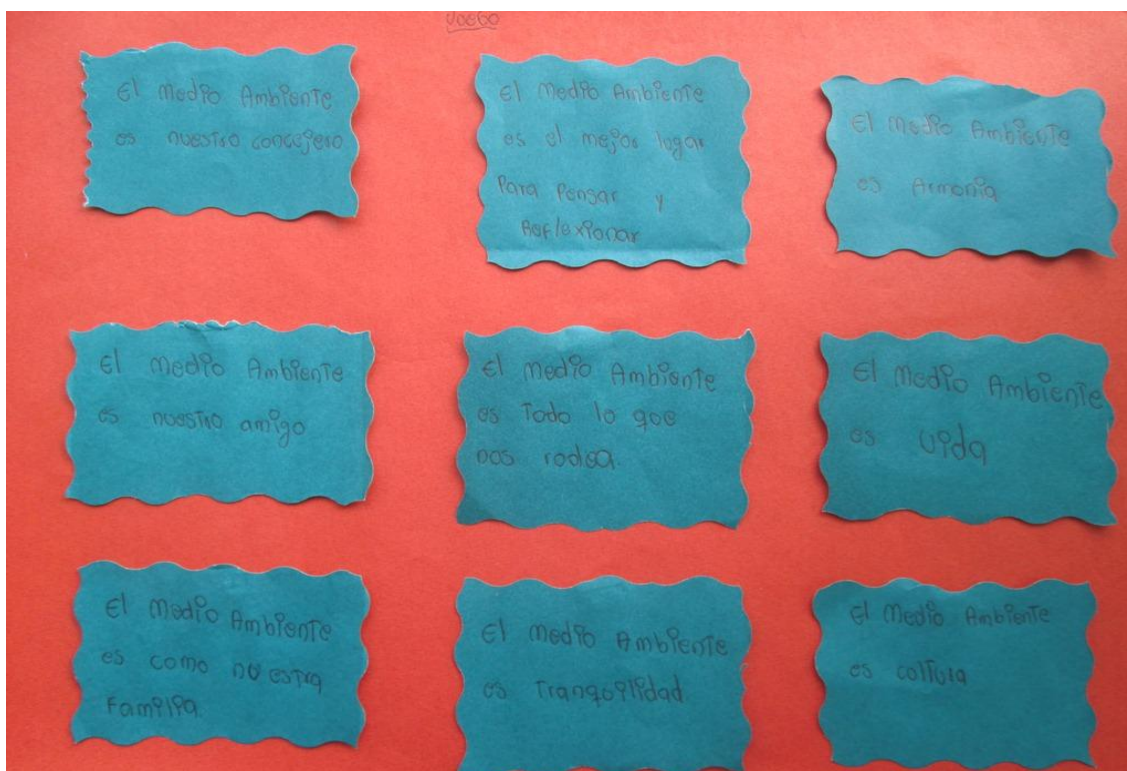 Juego
El Medio Ambiente
es nuestro concejero
El Medio Ambiente
es el mejor lugar
Para Pensar y
Reflexionar
El Medio Ambiente
es Armonia
El Medio Ambiente
es nuestro amigo
El Medio Ambiente
es Todo lo que
nos rodea.
El Medio Ambiente
es vida
El Medio Ambiente
es como nuestra
Familia.
El Medio Ambiente
es Tranquilidad
El Medio Ambiente
es cultura